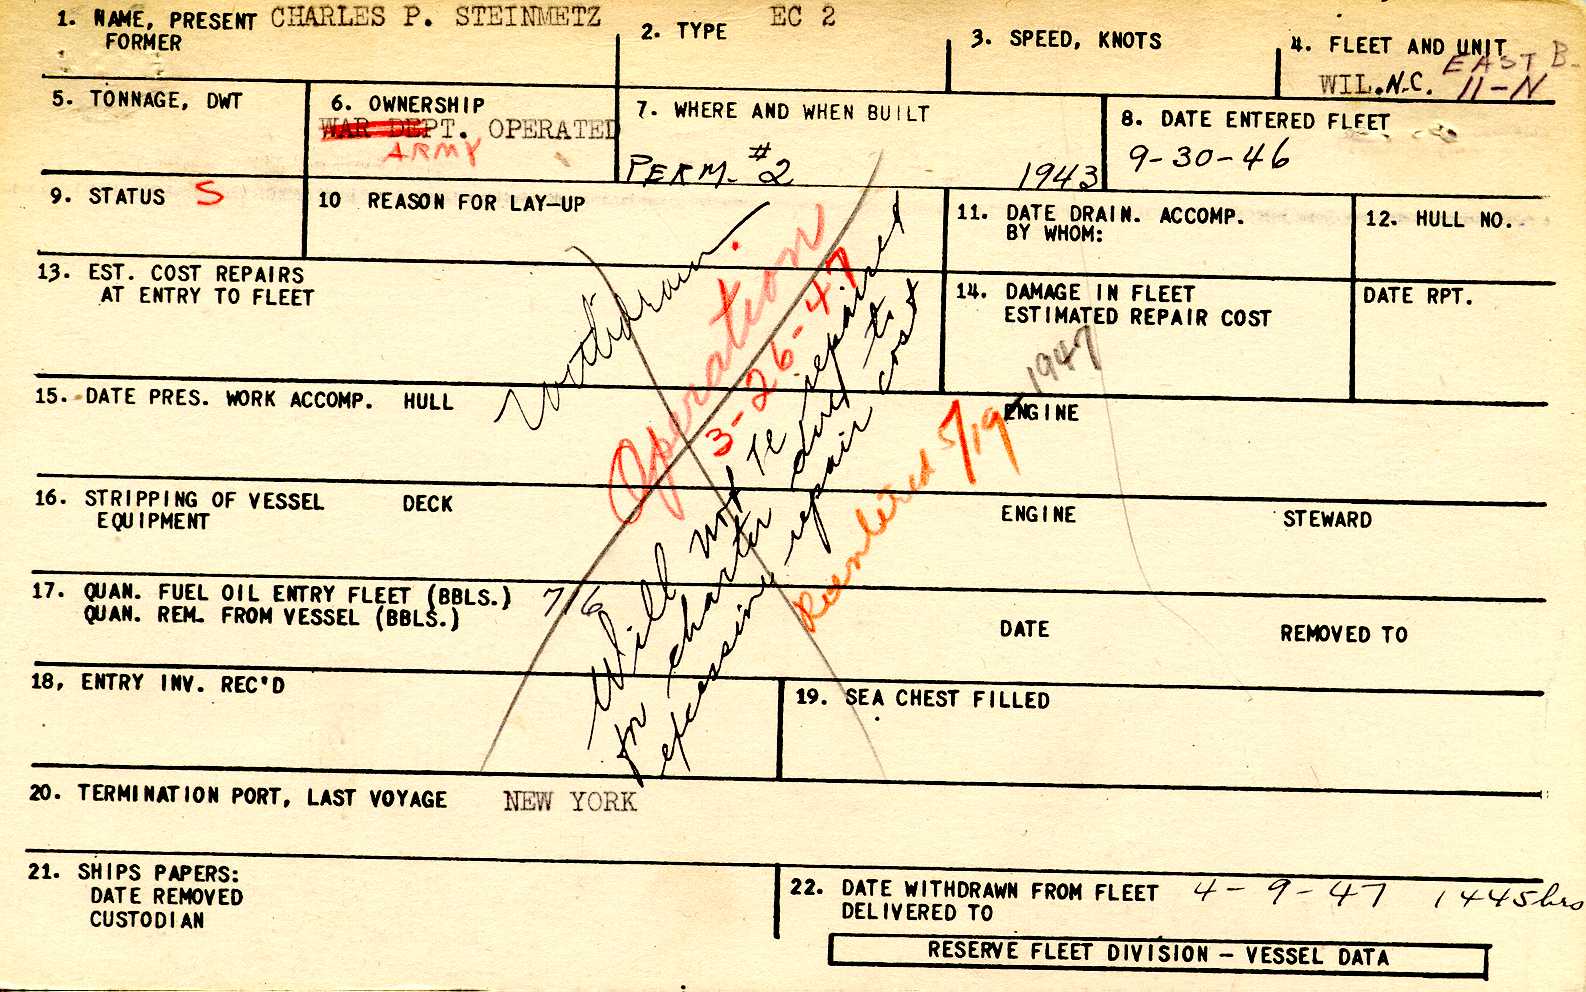 1. NAME, PRESENT CHARLES P. STEINMETZ
FORMER
2. TYPE EC 2
3. SPEED, KNOTS
4. FLEET AND UNIT
EAST B-
WIL.N.C. 11-N
5. TONNAGE, DWT
6. OWNERSHIP
WAR DEPT. OPERATED
ARMY
7. WHERE AND WHEN BUILT
PERM. #2 1943
8. DATE ENTERED FLEET
9-30-46
9. STATUS S
10 REASON FOR LAY-UP
11. DATE DRAIN. ACCOMP.
BY WHOM:
12. HULL NO.
13. EST. COST REPAIRS
AT ENTRY TO FLEET
14. DAMAGE IN FLEET
ESTIMATED REPAIR COST
DATE RPT.
Withdrawn.
Operation
3-26-47
Will not be repaired
for charter due to
excessive repair cost
5/19-1947
15. DATE PRES. WORK ACCOMP. HULL
ENGINE
16. STRIPPING OF VESSEL DECK
EQUIPMENT
ENGINE
STEWARD
17. QUAN. FUEL OIL ENTRY FLEET (BBLS.) 716
QUAN. REM. FROM VESSEL (BBLS.)
DATE
REMOVED TO
18, ENTRY INV. REC'D
19. SEA CHEST FILLED
20. TERMINATION PORT, LAST VOYAGE NEW YORK
21. SHIPS PAPERS:
DATE REMOVED
CUSTODIAN
22. DATE WITHDRAWN FROM FLEET 4-9-47 1445hrs
DELIVERED TO
RESERVE FLEET DIVISION - VESSEL DATA